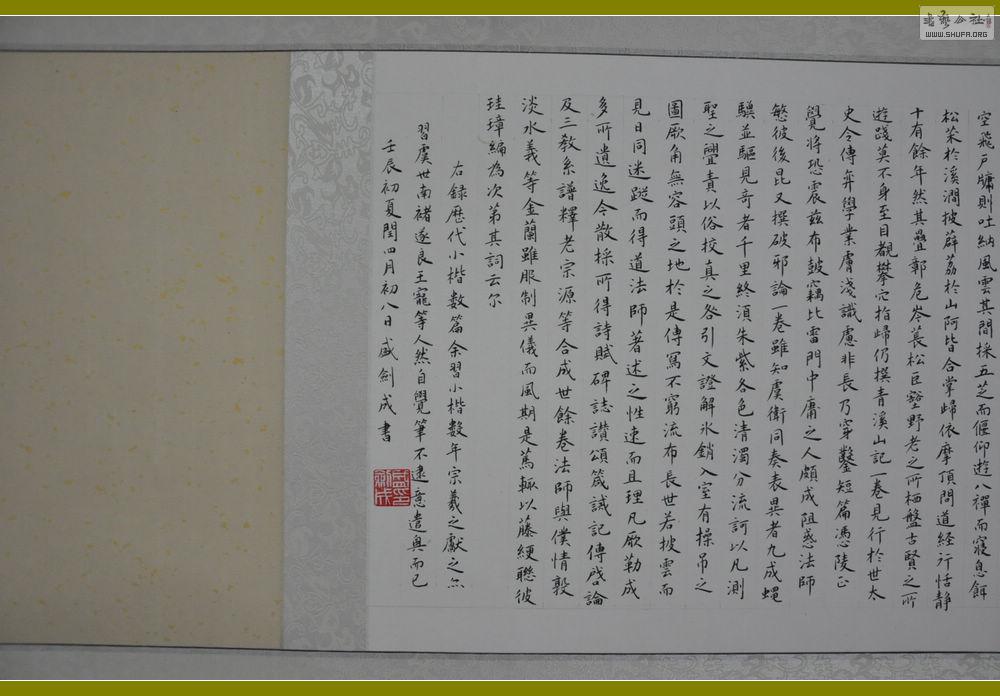 空飛戶牖則吐納風雲其間採五芝而偃仰遊八禪而寢息餌
松茱於溪澗披薜荔於山阿皆合掌歸依摩頂問道經行恬靜
十有餘年然其疊鄣危岑萇松巨壑野老之所栖盤古賢之所
遊踐莫不身至目覩攀穴指歸仍撰青溪山記一卷見行於世太
史令傅弈學業膚淺識慮非長乃穿鑿短篇憑陵正
覺將恐震茲布鼓竊比雷門中庸之人頗成阻惑法師
愍彼後昆又撰破邪論一卷雖知虞衛同奏表異者九成蠅
驥並驅見奇者千里終須朱紫各色清濁分流訶以凡測
聖之舋責以俗校真之咎引文證解氷銷入室有操吊之
圖厥角無容頭之地於是傳寫不窮流布長世若披雲而
見日同迷踨而得道法師著述之性速而且理凡厥勒成
多所遺逸今散採所得詩賦碑誌讚頌箴誡記傳啓論
及三教系譜釋老宗源等合成世餘卷法師與僕情敦
淡水義等金蘭雖服制異儀而風期是篤輒以藤綆聯彼
珪璋編為次第其詞云尔
右録歷代小楷數篇余習小楷數年宗羲之獻之尔
習虞世南褚遂良王寵等人然自覺筆不逮意遣興而已
壬辰初夏閏四月初八日盛劍成書
盛劍成印
書藝公社
WWW.SHUFA.ORG